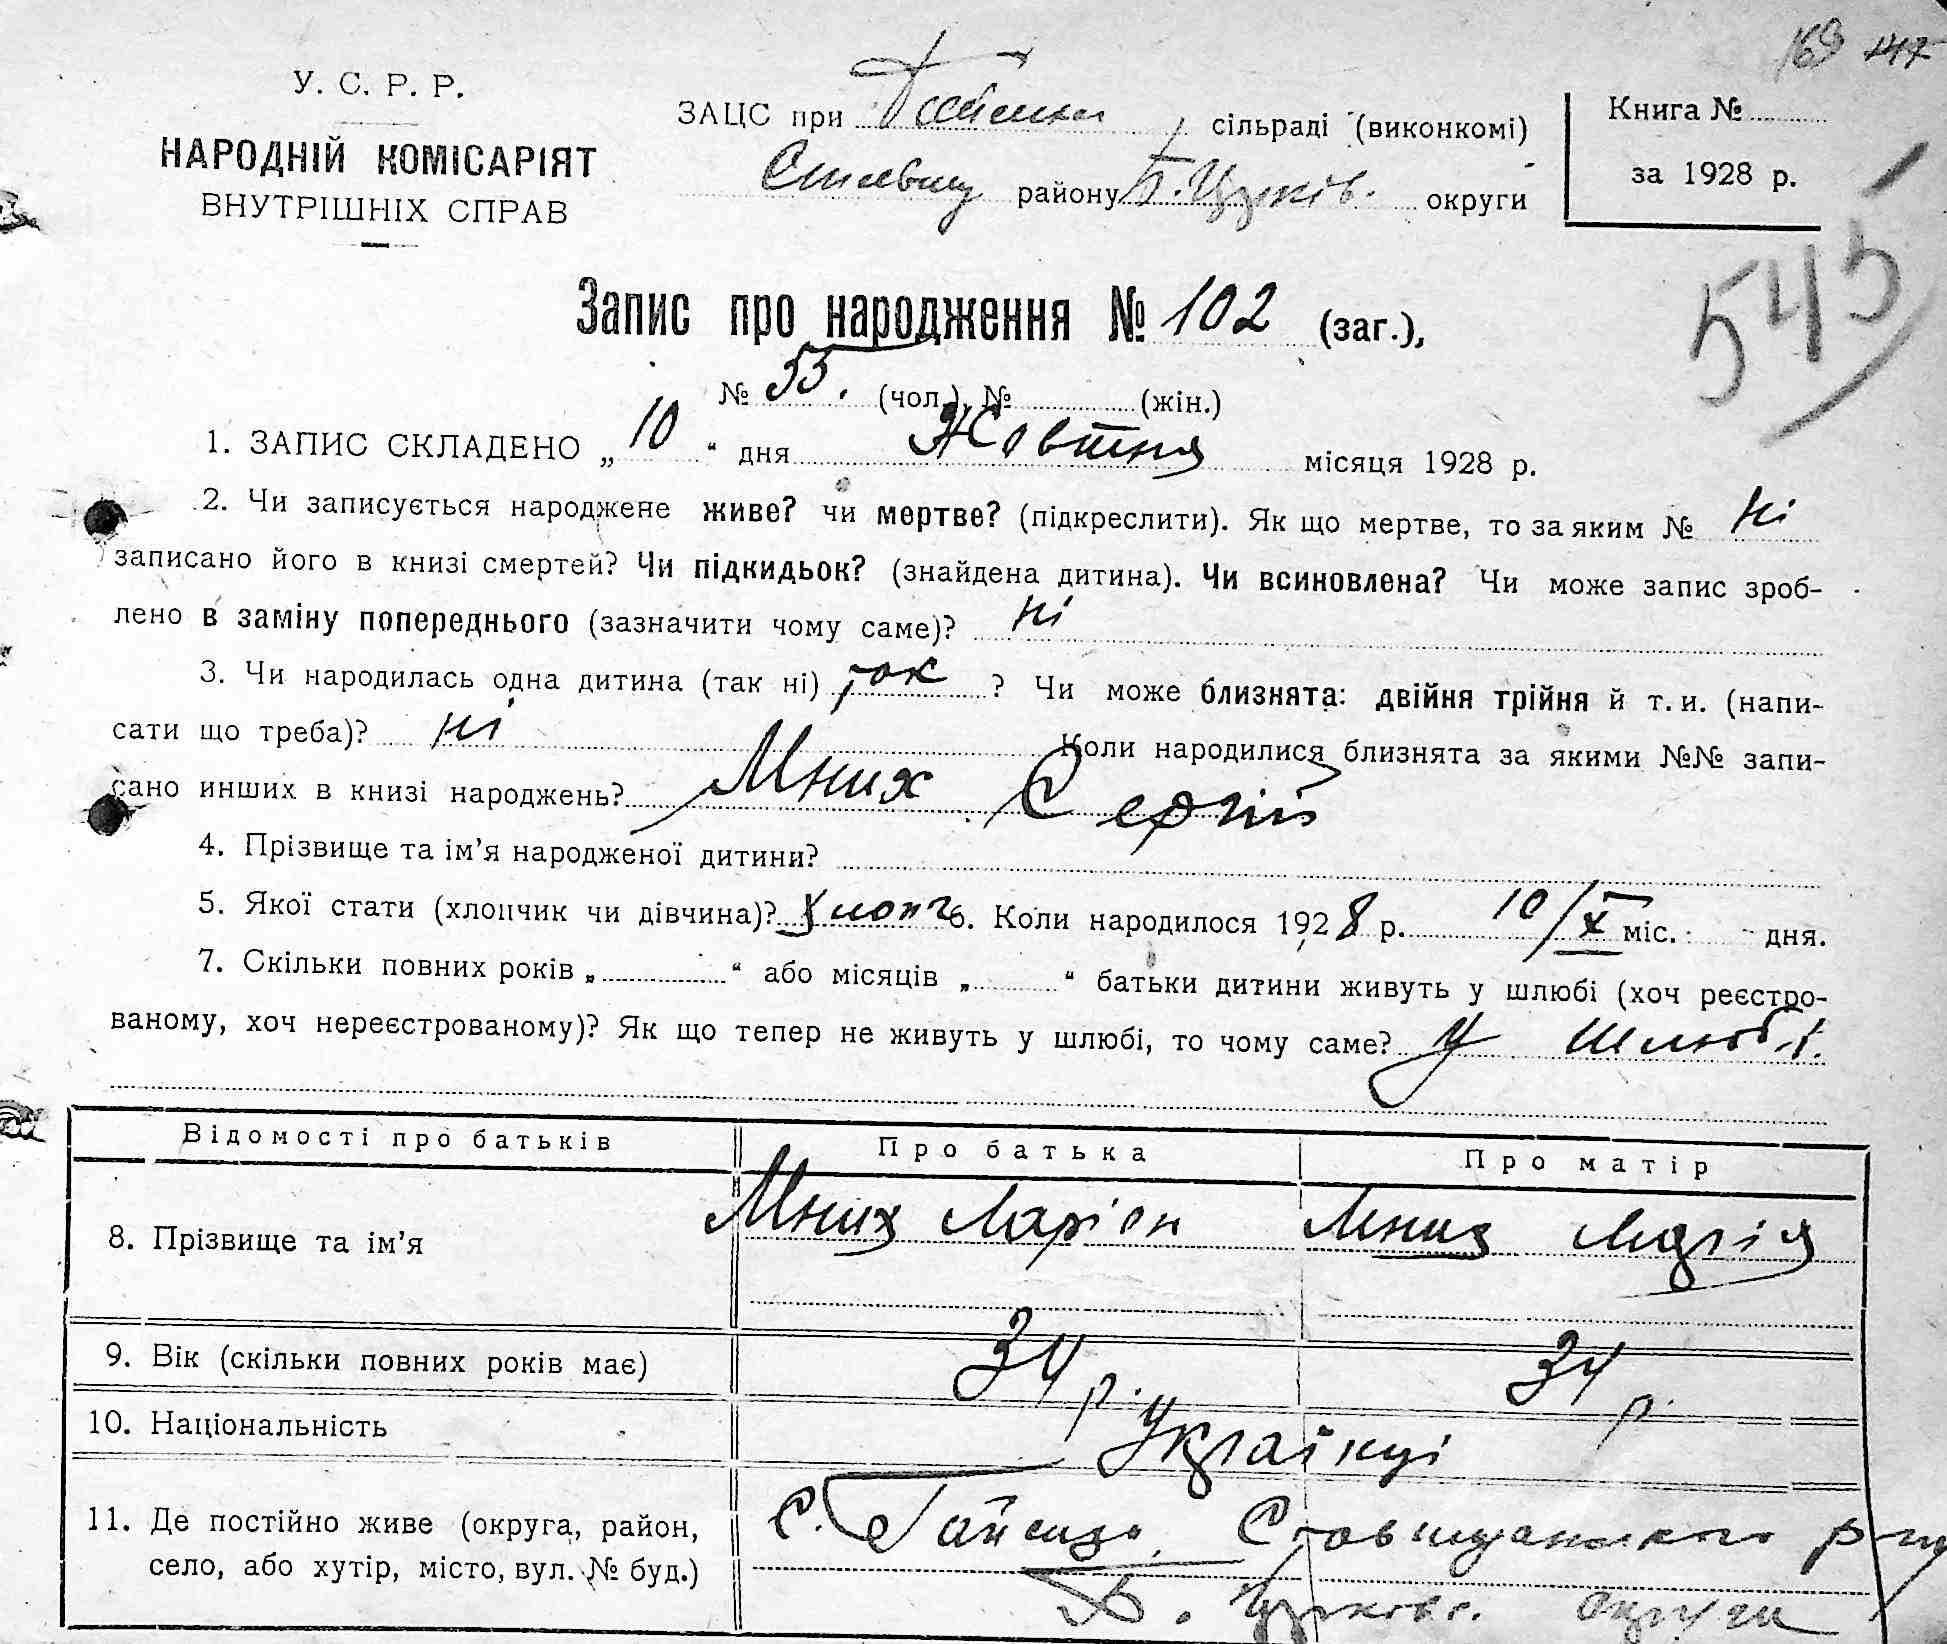 169 147
У. С. Р. Р.
НАРОДНІЙ КОМІСАРІЯТ
ВНУТРІШНІХ СПРАВ
ЗАЦС при сільраді (виконкомі)
району Б. Церків. округи
Книга №
за 1928 р.
545
Запис про народження № 102 (заг.),
№ 55. (чол.), № (жін.)
1. ЗАПИС СКЛАДЕНО „ 10 “ дня Жовтня місяця 1928 р.
2. Чи записується народжене живе? чи мертве? (підкреслити). Як що мертве, то за яким № Ні
записано його в книзі смертей? Чи підкидьок? (знайдена дитина). Чи всиновлена? Чи може запис зроб-
лено в заміну попереднього (зазначити чому саме)? Ні
3. Чи народилась одна дитина (так ні) так ? Чи може близнята: двійня трійня й т. и. (напи-
сати що треба)? ні Коли народилися близнята за якими №№ запи-
сано инших в книзі народжень? Мних Сергій
4. Прізвище та ім’я народженої дитини?
5. Якої стати (хлопчик чи дівчина)? Хлопч 6. Коли народилося 1928 р. 10/X міс. дня.
7. Скільки повних років „ “ або місяців „ “ батьки дитини живуть у шлюбі (хоч реєстро-
ваному, хоч нереєстрованому)? Як що тепер не живуть у шлюбі, то чому саме? У шлюбі.
Відомості про батьків Про батька Про матір
8. Прізвище та ім’я Мних Ларіон Мних
9. Вік (скільки повних років має) 34 р. 34 р.
10. Національність Українці
11. Де постійно живе (округа, район, с. Гайсиця, Ставищанського р-ну
село, або хутір, місто, вул. № буд.) Б. Церков. округи